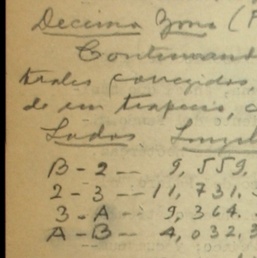 Decima Zona (
Continuand
trales corregidos,
de un trapecio, c
Lados Longit
B - 2 -- 9,559,
2 - 3 -- 11,731.3
3 - A -- 9,364.
A - B -- 4,032,3